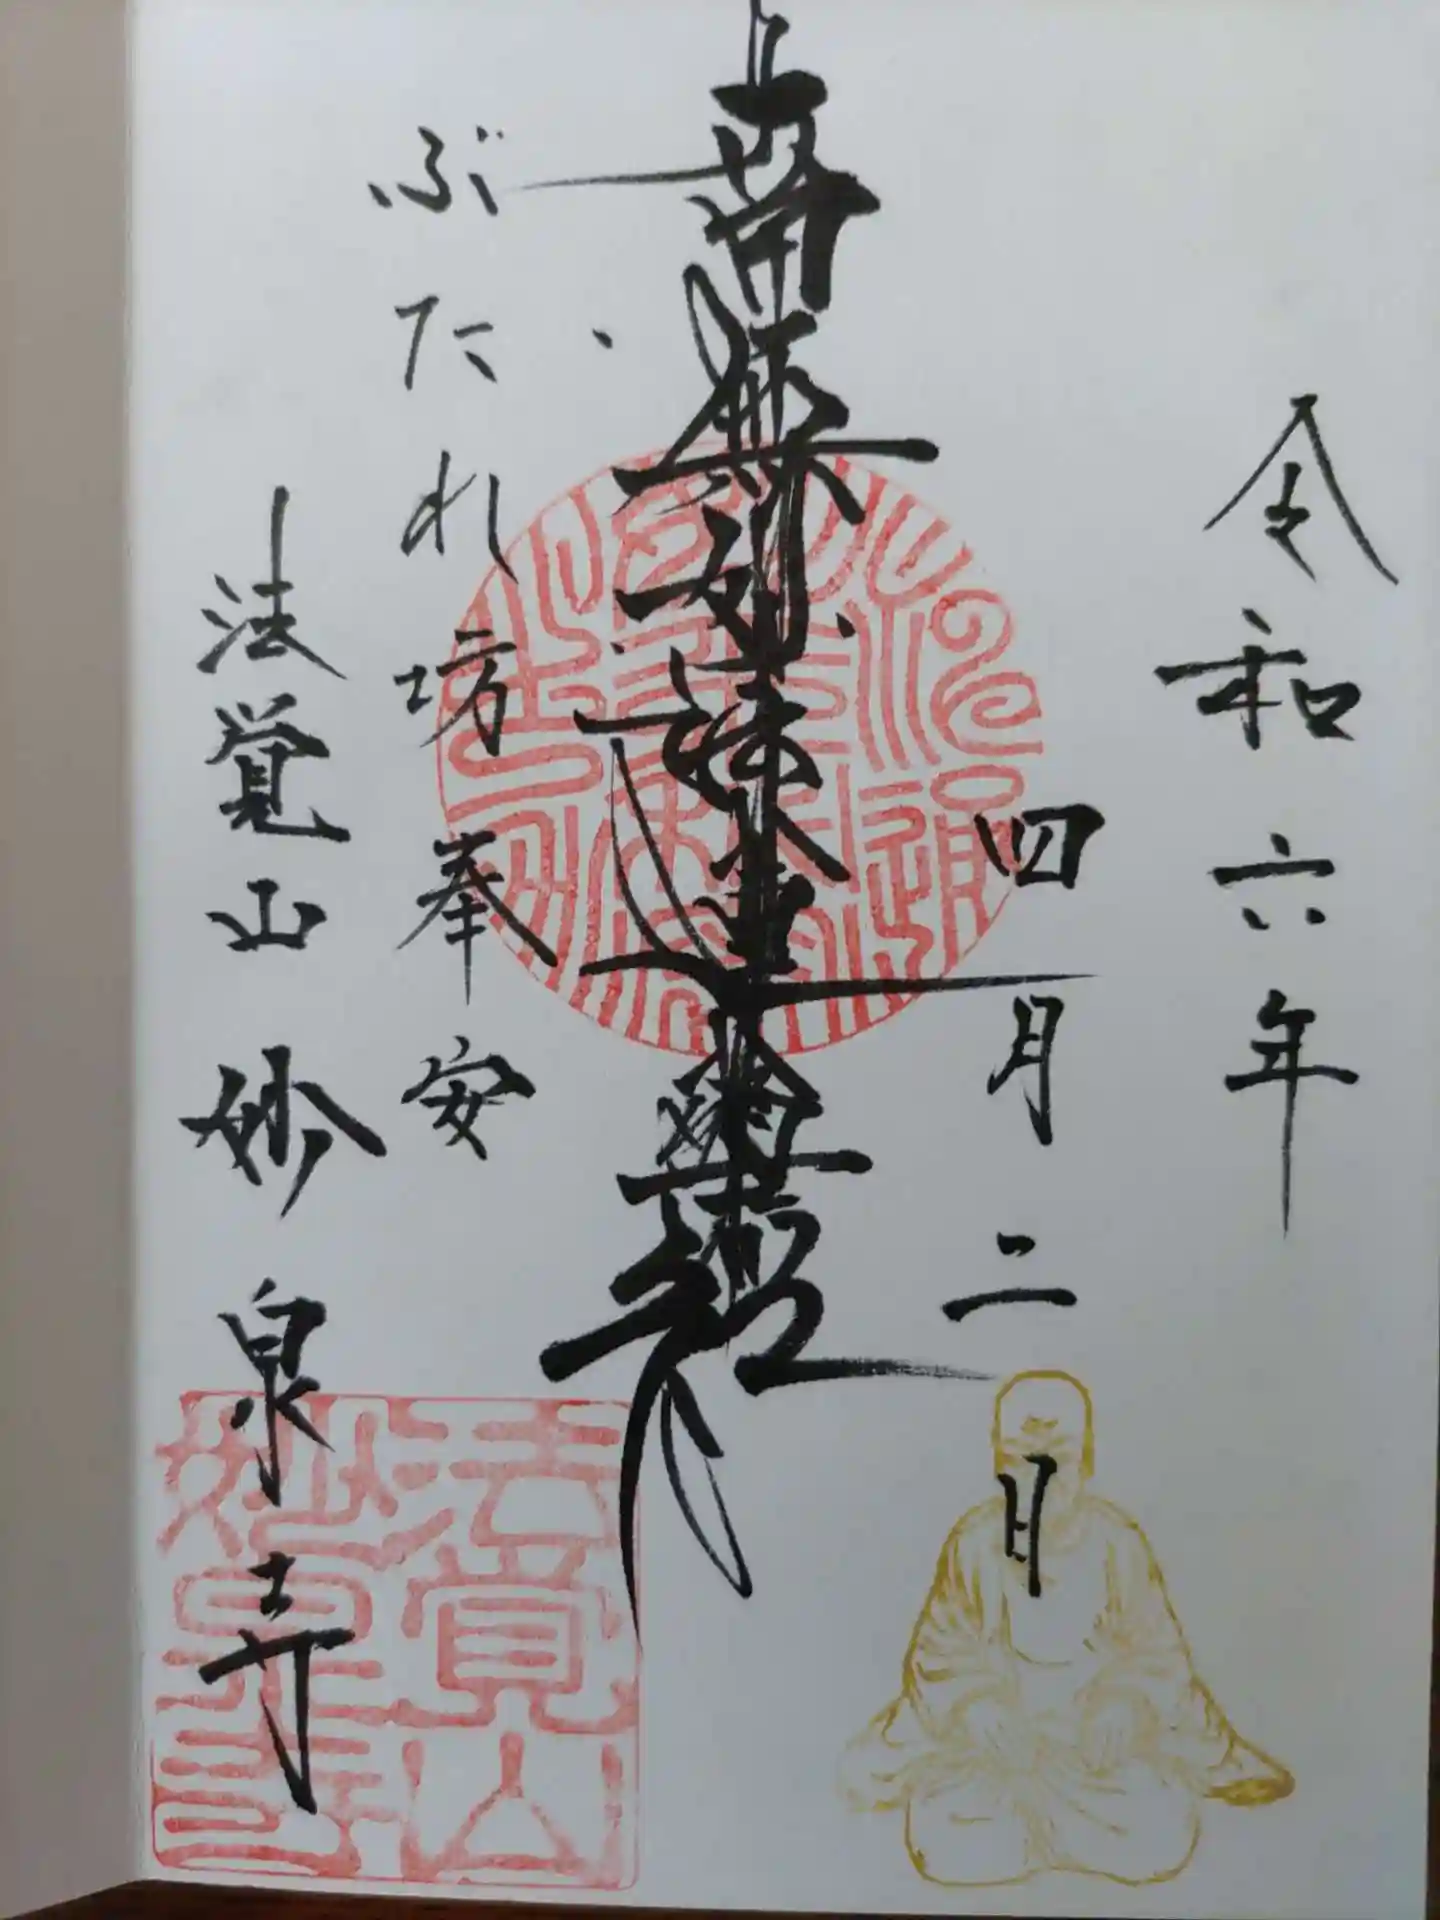 令和六年
四月二日
南無妙法蓮華経
ぶたれ坊奉安
法覚山妙泉寺
法覚山
妙泉寺